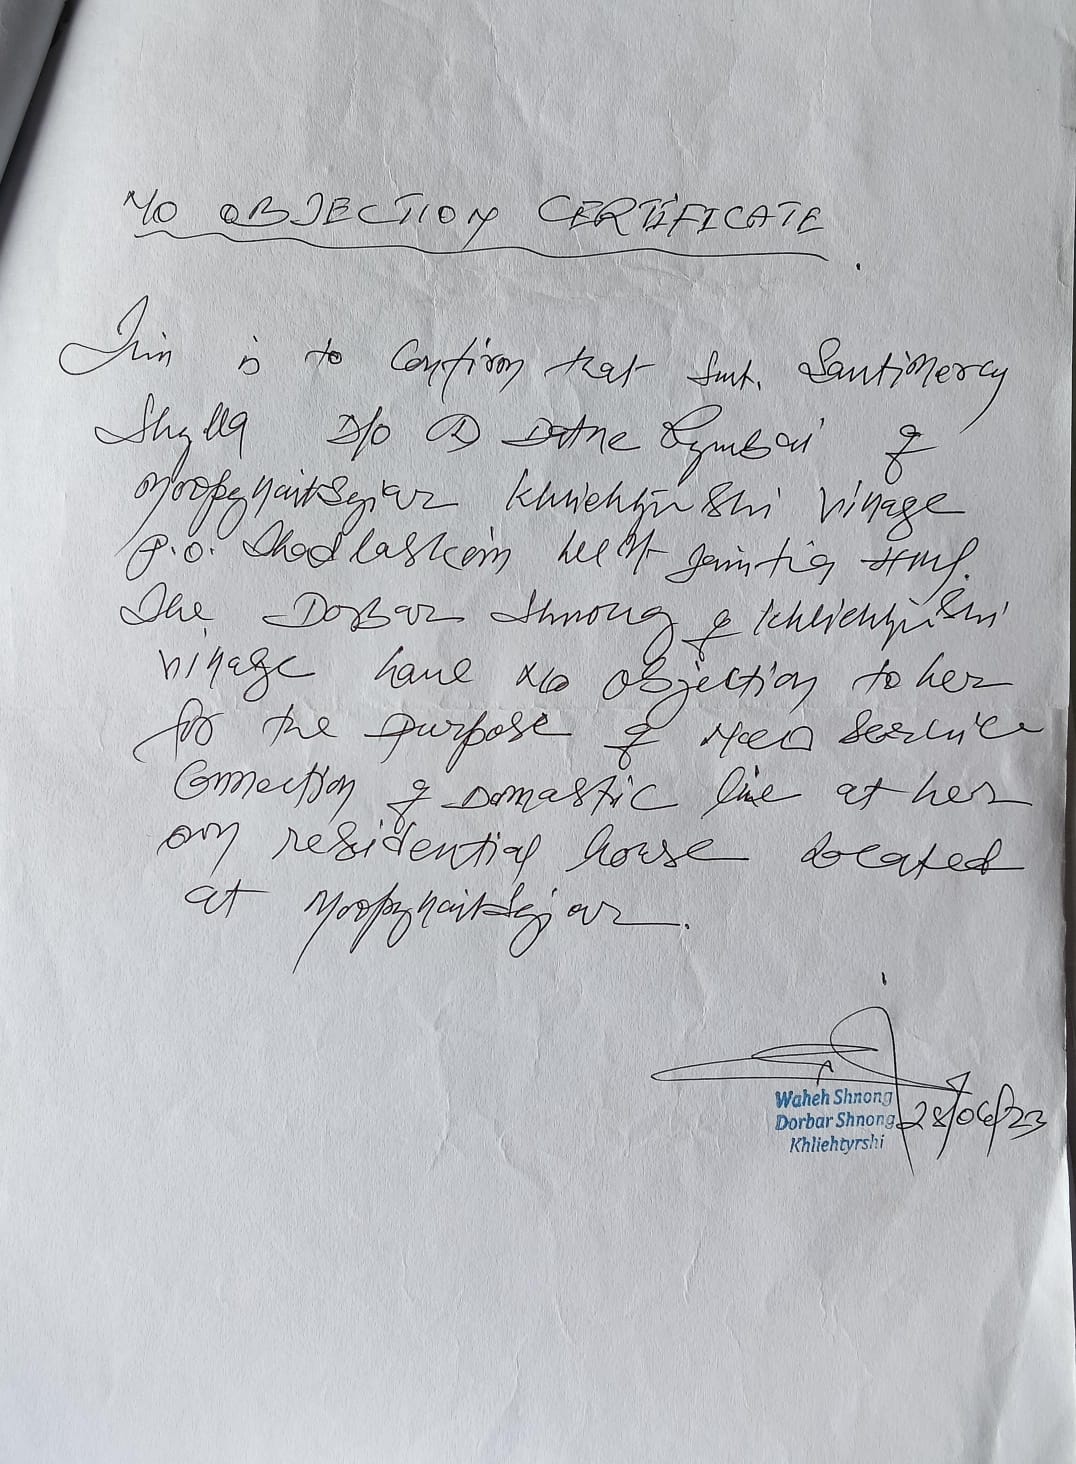 NO OBJECTION CERTIFICATE
This is to Confirm that Smt. Santimercy
Shylla D/o Datne Rymbai of
Moopynaitsyiar Khliehtyrshi Village
P.O. Thadlaskein West Jaintia Hills.
The Dorbar Shnong of Khliehtyrshi
Village have No objection to her
for the purpose of New Service
Connection of Domastic line at her
own residential house located
at Moopynaitsyiar.
Waheh Shnong
Dorbar Shnong 28/06/23
Khliehtyrshi